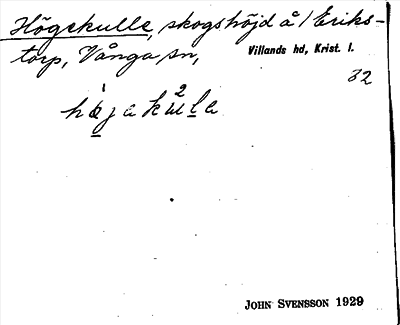 Högekulle, skogshöjd å 1 Eriks-
torp, Vånga sn, Villands hd, Krist. l.
32
JOHN SVENSSON 1929